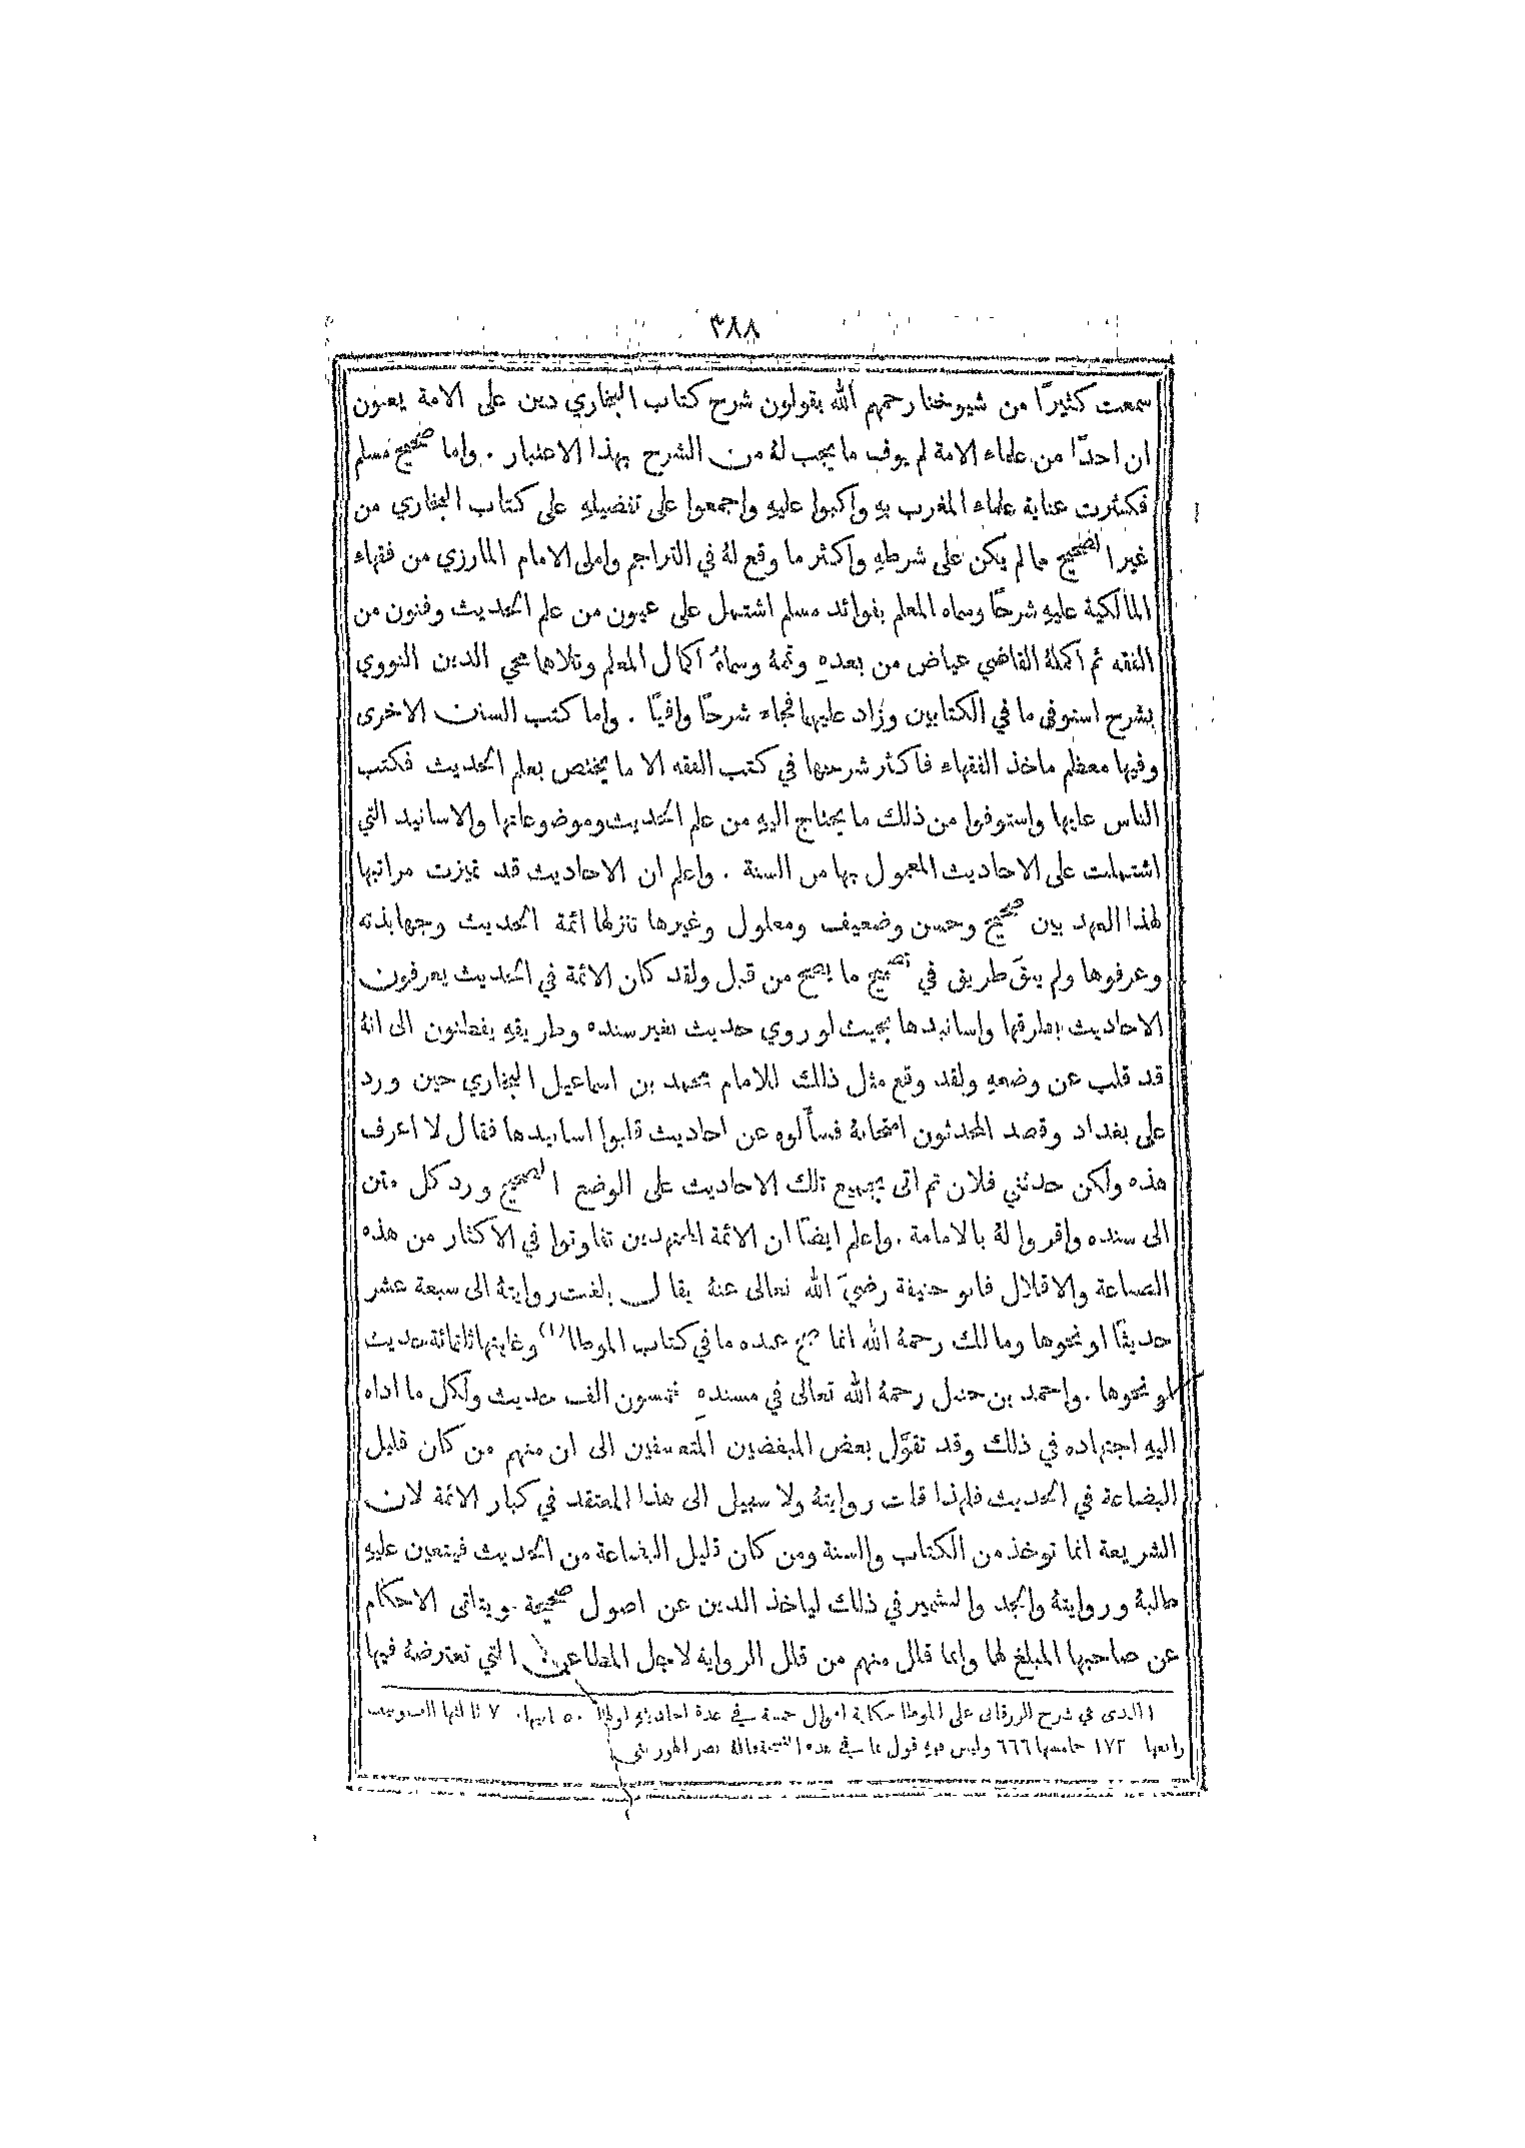 ٣٨٨
سمعت كثيرًا من شيوخنا رحمهم الله يقولون شرح كتاب البخاري دين على الامة يعنون
ان احدًا من علماء الامة لم يوف ما يجب لهُ من الشرح بهذا الاعتبار . واما صحيح مسلم
فكثرت عناية علماء المغرب بهِ واكبوا عليهِ واجمعوا على تفضيلهِ على كتاب البخاري من
غير الصحيح مما لم يكن على شرطهِ واكثر ما وقع لهُ في التراجم واملى الامام المازري من فقهاء
المالكية عليهِ شرحًا وسماه المعلم بفوائد مسلم اشتمل على عيون من علم الحديث وفنون من
الفقه ثم اكملهُ القاضي عياض من بعدهِ وتممهُ وسماهُ اكمال المعلم وتلاهما محيي الدين النووي
بشرح استوفى ما في الكتابين وزاد عليهما فجاء شرحًا وافيًا . واما كتب السنن الاخرى
وفيها معظم ماخذ الفقهاء فاكثر شرحها في كتب الفقه الا ما يختص بعلم الحديث فكتب
الناس عليها واستوفوا من ذلك ما يحتاج اليهِ من علم الحديث وموضوعاتها والاسانيد التي
اشتملت على الاحاديث المعمول بها من السنة . واعلم ان الاحاديث قد تميزت مراتبها
لهذا العهد بين صحيح وحسن وضعيف ومعلول وغيرها تنزلها ائمة الحديث وجهابذته
وعرفوها ولم يبقَ طريق في تصحيح ما يصح من قبل ولقد كان الائمة في الحديث يعرفون
الاحاديث بطرقها واسانيدها بحيث لو روي حديث بغير سنده وطريقهِ يفطنون الى انهُ
قد قلب عن وضعهِ ولقد وقع مثل ذلك للامام محمد بن اسماعيل البخاري حين ورد
على بغداد وقصد المحدثون امتحانهُ فسألوه عن احاديث قلبوا اسانيدها فقال لا اعرف
هذه ولكن حدثني فلان ثم اتى بجميع تلك الاحاديث على الوضع الصحيح ورد كل متن
الى سنده واقروا لهُ بالامامة . واعلم ايضًا ان الائمة المجتهدين تفاوتوا في الاكثار من هذه
الصناعة والاقلال فابو حنيفة رضيَ الله تعالى عنهُ يقال بلغت روايتهُ الى سبعة عشر
حديثًا او نحوها ومالك رحمهُ الله انما صح عنده ما في كتاب الموطا (١) وغايتها ثلثمائة حديث
او نحوها . واحمد بن حنبل رحمهُ الله تعالى في مسندهِ خمسون الف حديث ولكل ما اداه
اليهِ اجتهاده في ذلك وقد تقوَّل بعض المبغضين المتعسفين الى ان منهم من كان قليل
البضاعة في الحديث فلهذا قلت روايتهُ ولا سبيل الى هذا المعتقد في كبار الائمة لان
الشريعة انما توخذ من الكتاب والسنة ومن كان قليل البضاعة من الحديث فيتعين عليهِ
طلبهُ وروايتهُ والجد والتشمير في ذلك لياخذ الدين عن اصول صحيحة ويتلقى الاحكام
عن صاحبها المبلغ لها وانما قلل منهم من قلل الرواية لاجل المطاعن التي تعترضهُ فيها
١ الذي في شرح الزرقاني على الموطا حكاية اقوال خمسة في عدة احاديثهِ اولها ٥٠٠ ثانيها ٧٠٠ ثالثها الف ونيف
رابعها ١٧٢٠ خامسها ٦٦٦ وليس فيهِ قول بما في هذه النسخة قالهُ نصر الهوريني